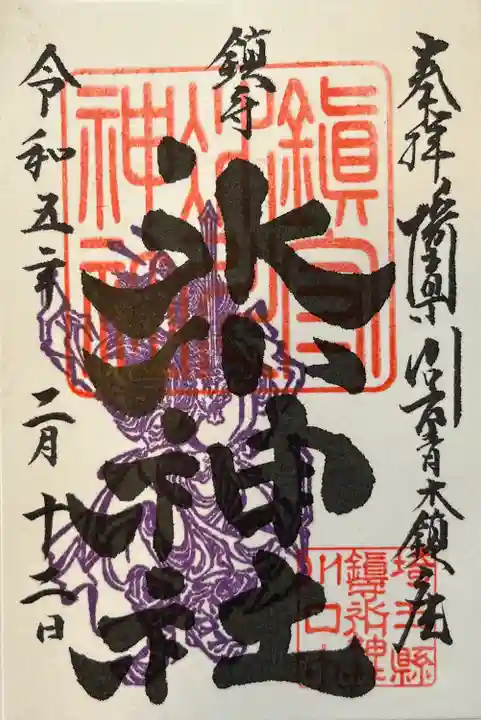 奉拝 埼玉県川口市青木鎮座
鎮守
氷川神社
令和五年二月十二日
鎮守
氷川
神社
埼玉縣
鎮守氷川神社
川口市